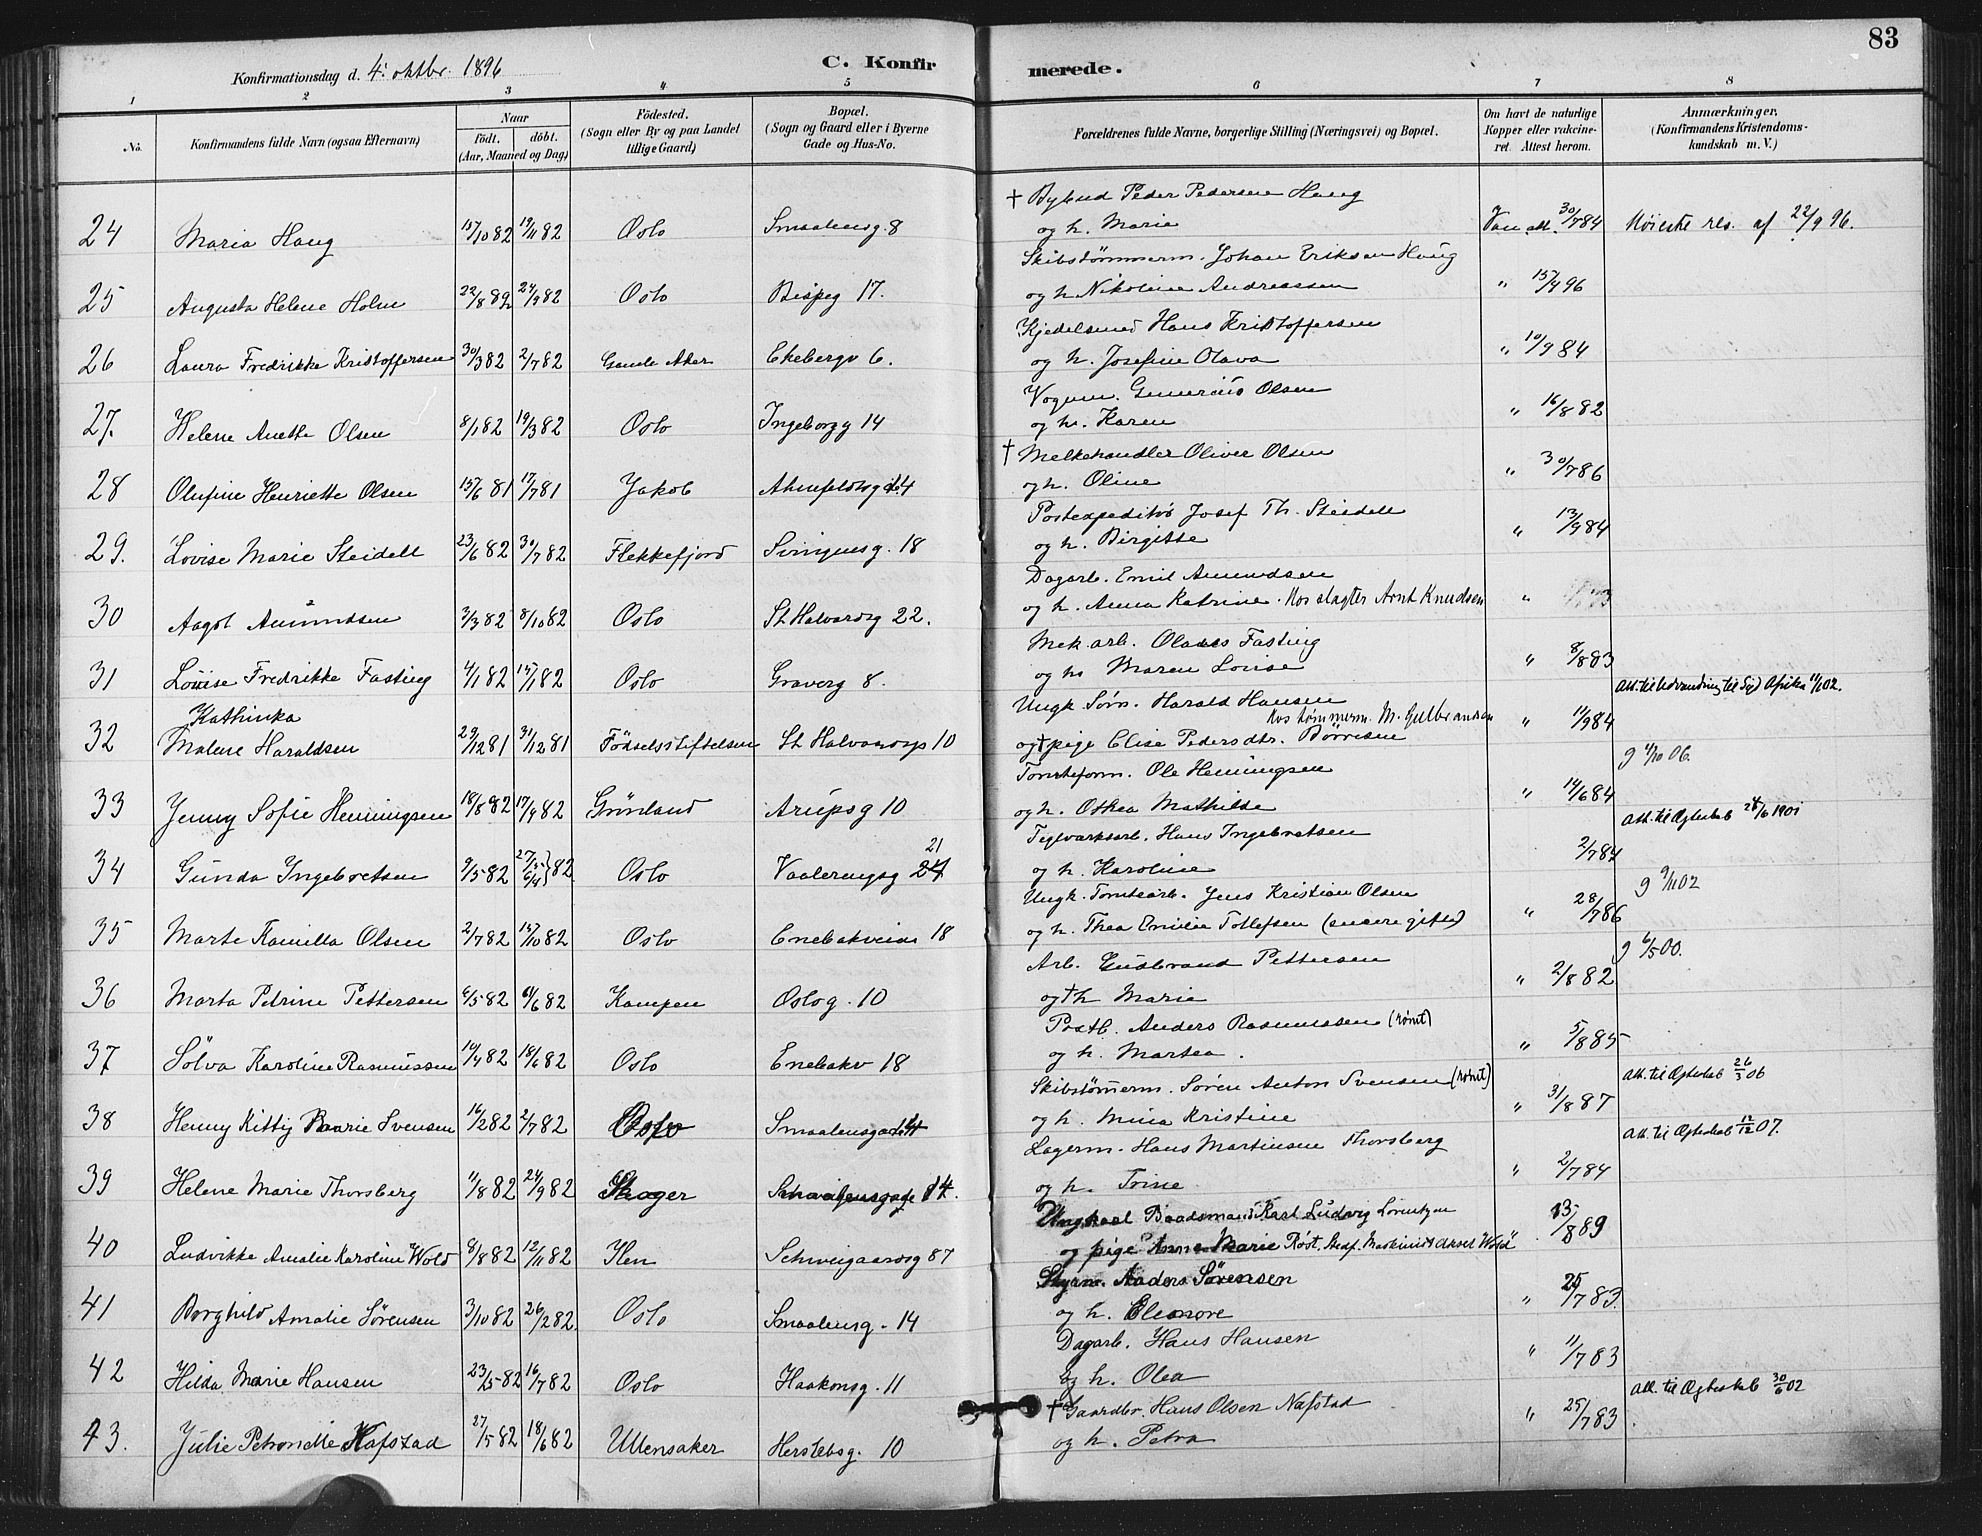 83
Konfirmationsdag d. 4. oktbr. 1896
C. Konfirmerede.
1 2 3 4 5 6 7 8
No.
Konfirmandens fulde Navn (ogsaa Efternavn)
Naar
födt. döbt.
(Aar, Maaned og Dag)
Födested.
(Sogn eller By og paa Landet
tillige Gaard)
Bopæl.
(Sogn og Gaard eller i Byerne
Gade og Hus-No.
Forældrenes fulde Navne, borgerlige Stilling (Næringsvei) og Bopæl.
Om havt de naturlige
Kopper eller vakcine-
ret. Attest herom.
Anmærkninger.
(Konfirmandens Kristendoms-
kundskab m. V.)
† Bybud Peder Pedersen Haug
24 Maria Haug 15/10 82 19/11 82 Oslo Smaalensg. 8 og h. Marie Vac. att. 30/7 84 22/9 96.
Skibstømmerm. Johan Eriksen Haug
25 Augusta Helene Holm 22/8 82 24/9 82 Oslo Bispeg 17. og h. Nikoline Andreassen " 15/4 96
Kjedelsmed Hans Kristoffersen
26 Laura Fredrikke Kristoffersen 30/3 82 2/7 82 Gamle Aker Ekebergv 6. og h. Josefine Olava " 10/9 84
Vognm. Gunerius Olsen
27. Helene Anette Olsen 8/1 82 19/3 82 Oslo Ingeborgg 14 og h. Karen " 16/8 82
† Melkehandler Oliver Olsen
28 Olufine Henriette Olsen 15/6 81 17/7 81 Jakob og h. Oline " 30/7 86
Postexpeditør Josef Th. Steidell
29. Lovise Marie Steidell 23/6 82 30/7 82 Flekkefjord Svingensg. 18 og h. Birgitte " 13/9 84
Dagarb. Emil Amundsen
30 Aagot Amundsen 3/3 82 8/10 82 Oslo St Halvardsg 22. og h. Anna Katrine. Hos slagter Arnt Knudsen "
Mek arb. Olaves Fasting
31 Louise Fredrikke Fasting 4/1 82 15/1 82 Oslo Graverg 8. og h. Maren Louise " 8/8 83
Att. til Udvandring til Syd Afrika 11/1 02.
Ungk. Sørn. Harald Hansen
32 Kathinka
Malene Haraldsen 29/12 81 31/12 81 Fødselsstiftelsen St Halvardsg 10 og † pige Elise Pedersdtr. Børresen Hos tømmerm. M. Gulbrandsen " 11/9 84
g 4/10 06.
Tomteform. Ole Henningsen
33 Jenny Sofie Henningsen 18/8 82 17/9 82 Grønland Arupsg 10 og h. Othea Mathilde " 14/6 84
Att. til Ægteskab 24/6 1901
Teglværksarb. Hans Ingebretsen
34 Gunda Ingebretsen 9/5 82 82 Oslo Vaalerengsg 21 og h. Karoline 2/7 84
g 9/11 02
Ungk. Tomtearb. Jens Kristian Olsen
35 Marte Kamilla Olsen 2/7 82 15/10 82 Oslo Enebakveien 18 og h. Thea Emilie Tollefsen (senere gifte) " 28/7 86
g 6/5 00.
Arb. Gudbrand Pettersen
36 Marta Petrine Pettersen 6/5 82 6/6 82 Kampen Oslog. 10 og † h Marie " 2/8 82
Postb. Anders Rasmussen (rømt)
37 Sølva Karoline Rasmussen 10/4 82 18/6 82 Oslo Enebakv 18 og h. Martea. " 5/8 85
Att. til Ægteskab 26/3 06
Skibstømerm. Søren Anton Svensen (rømt)
38 Henny Kitty Marie Svensen 16/2 82 2/7 82 Oslo Smaalensgade 14 og h. Mina Kristine " 31/8 87
Att. til Ægteskab 12/12 07.
Lagerm. Hans Martinsen Thorsberg
39 Helene Marie Thorsberg 11/8 82 24/9 82 Skoger Smaalensgade 14. og h. Trine " 2/7 84
Ungkarl Baadsmand Karl Ludvig Lorentzen
40 Ludvikke Amalie Karoline Wold 8/8 82 12/11 82 Ilen Schweigaardsg 87 og pige Anne Marie Røst. Stedf. Maskinist Aksel Wold " 13/8 89
Styrm. Anders Sørensen
41 Borghild Amalie Sørensen 3/10 82 26/2 82. Oslo Smaalensg. 14 og h. Eleonore " 25/7 83.
Dagarb. Hans Hansen
42 Hilda Marie Hansen 23/5 82 16/7 82 Oslo Haakonsg. 11 og h. Olea " 11/7 83
Att. til Ægteskab 30/6 02
† Gaardbr. Hans Olsen Nafstad
43. Julie Petronelle Nafstad 27/5 82 18/6 82 Ullensaker Herslebsg. 10 og h. Petra " 25/7 83